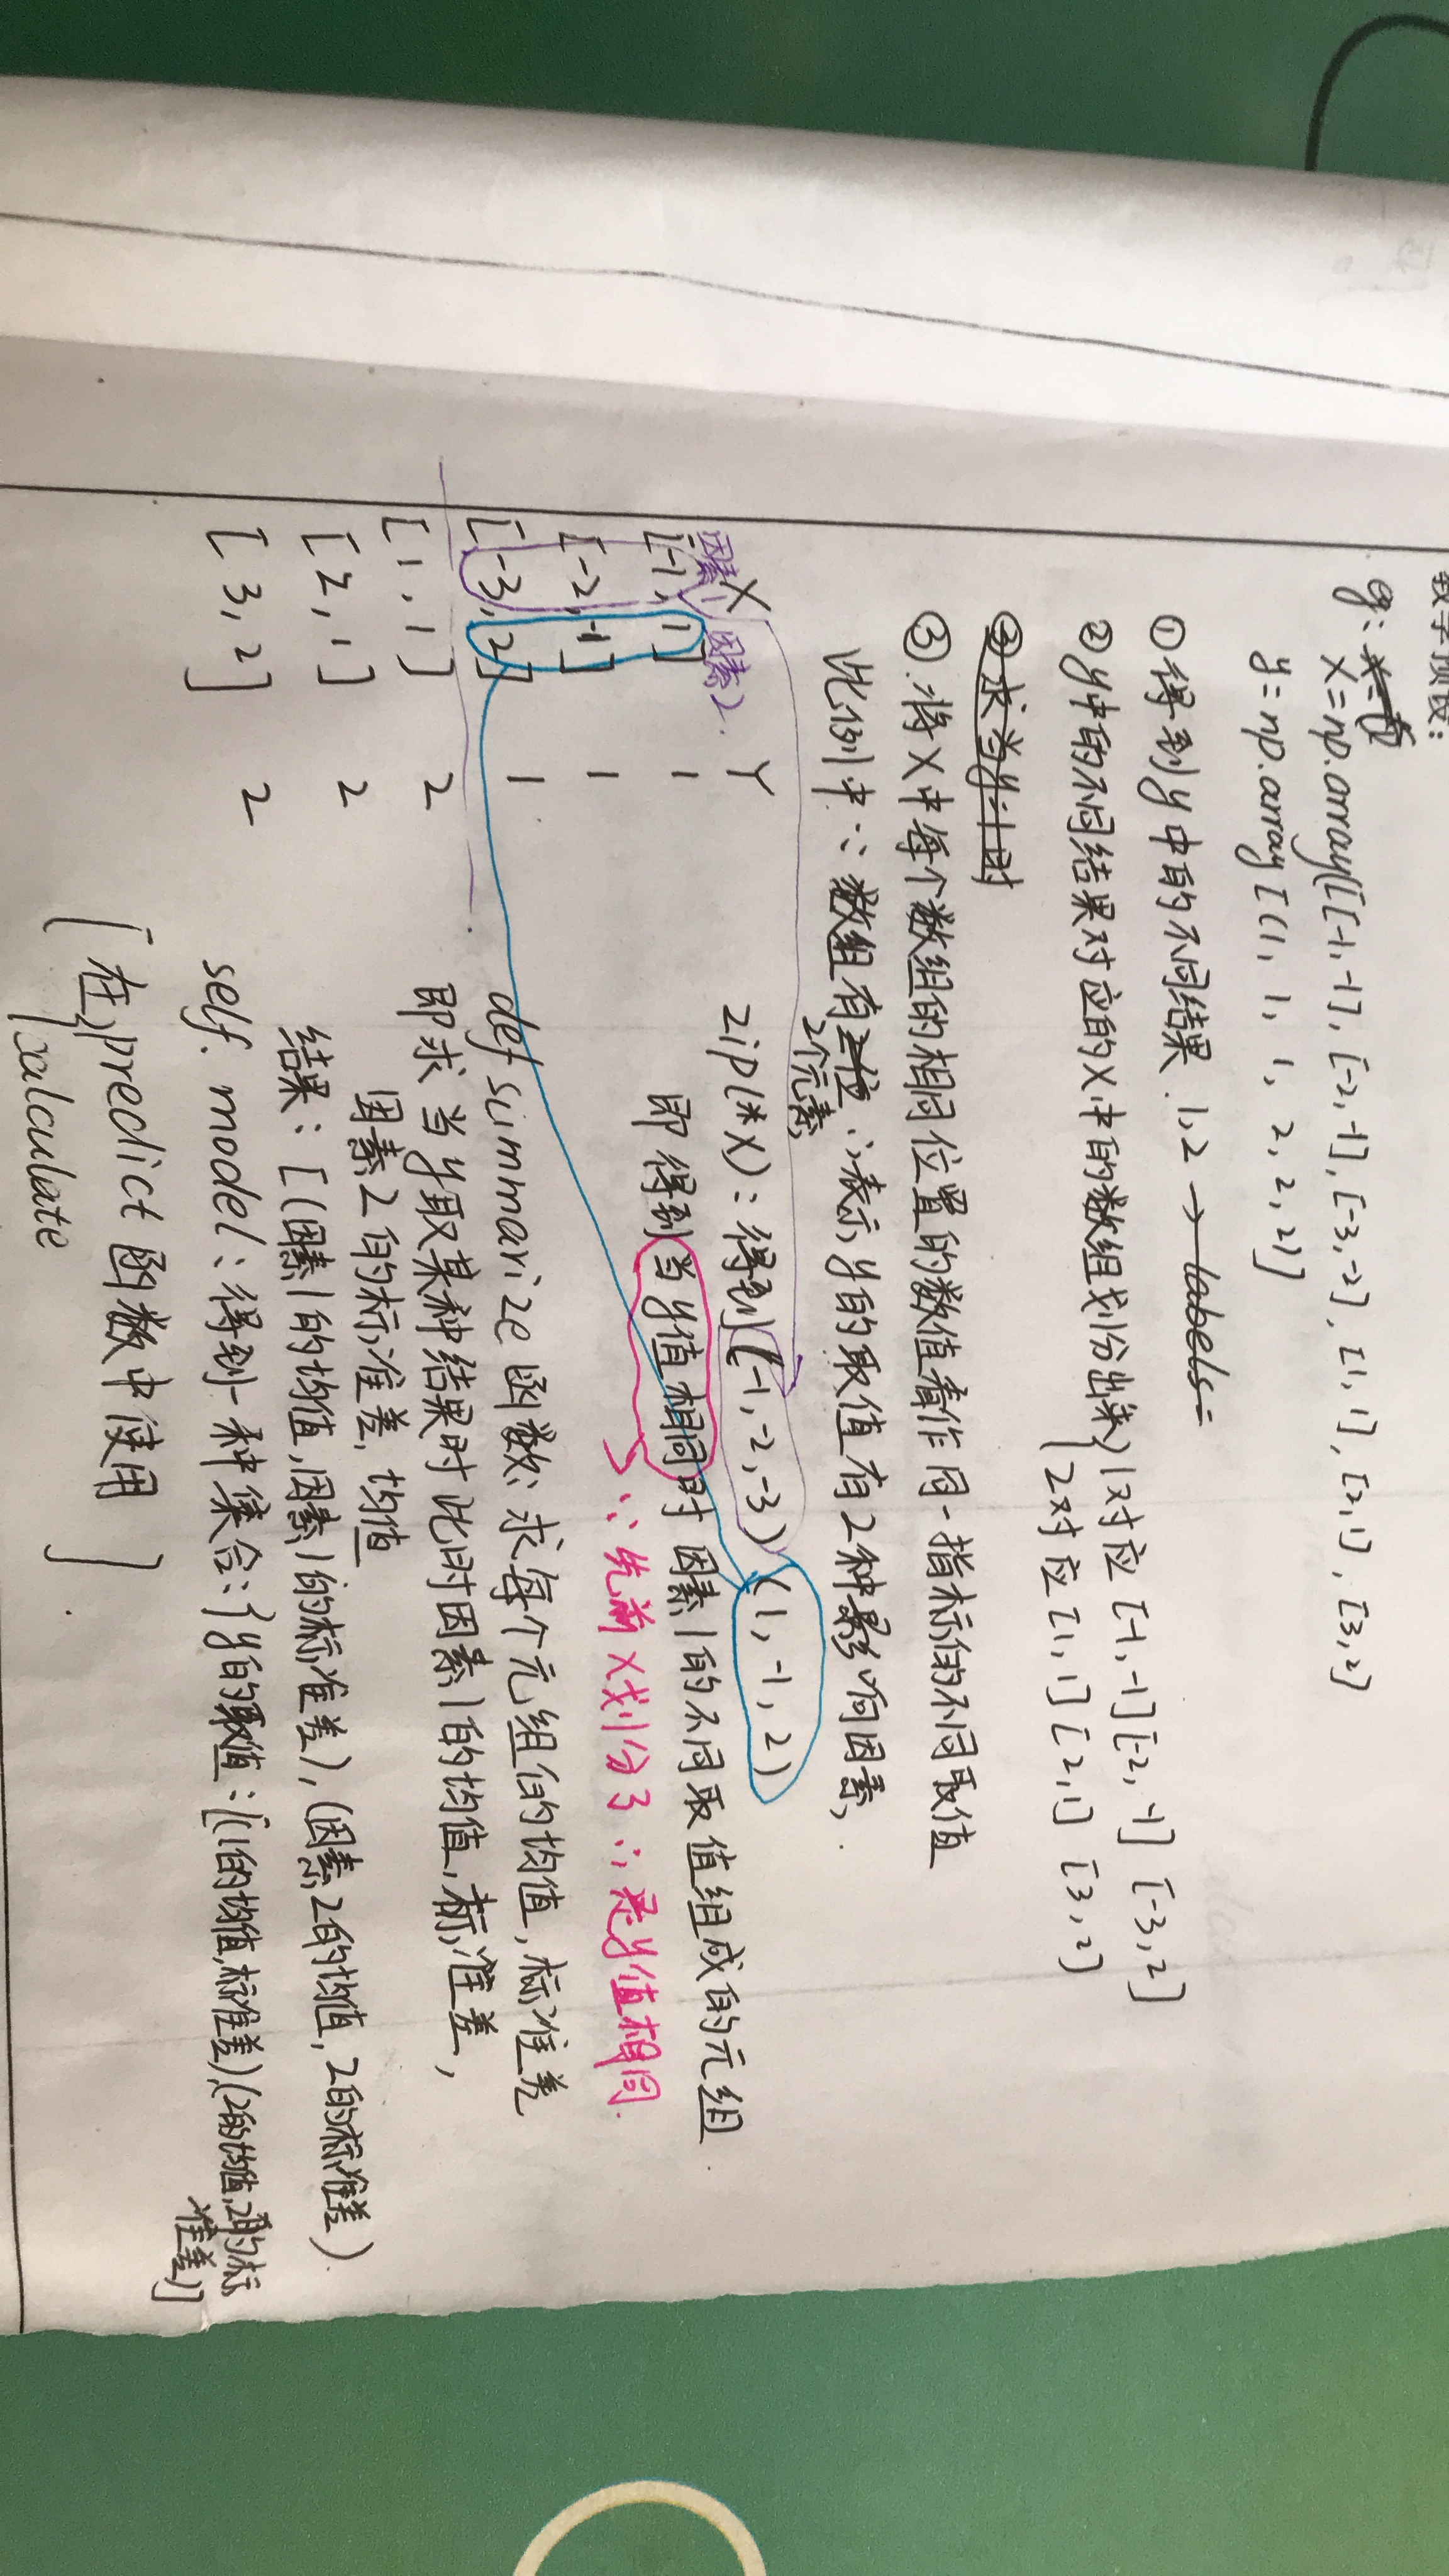 eg: X=np.array([[-1,-1],[-2,-1],[-3,-2],[1,1],[2,1],[3,2]
y=np.array[(1,1,1,2,2,2)]
①得到y中的不同结果 1,2 → labels=
②y中的不同结果对应的X中的数组划分出来 1对应[-1,-1][-2,-1][-3,2]
2对应[1,1][2,1][3,2]
③求当y=1时
③.将X中每个数组的相同位置的数值看作同一指标的不同取值
此例中∵数组有2个元素∴表示y的取值有2种影响因素,
X Y
因素1 因素2.
[-1, 1] 1
[-2, -1] 1
[-3, 2] 1
[1, 1] 2
[2, 1] 2
[3, 2] 2
zip(*X):得到(-1,-2,-3)(1,-1,2)
即得到当y值相同时因素1的不同取值组成的元组
∵先前X划分了∴是y值相同.
def summarize函数:求每个元组的均值,标准差
即求当y取某种结果时此时因素1的均值,标准差,
因素2的标准差,均值
结果:[(因素1的均值,因素1的标准差),(因素2的均值,2的标准差)
self.model:得到一种集合:{y的取值:[(1的均值,标准差)(2的均值,2的标
准差)]
[在predict函数中使用]
calculate